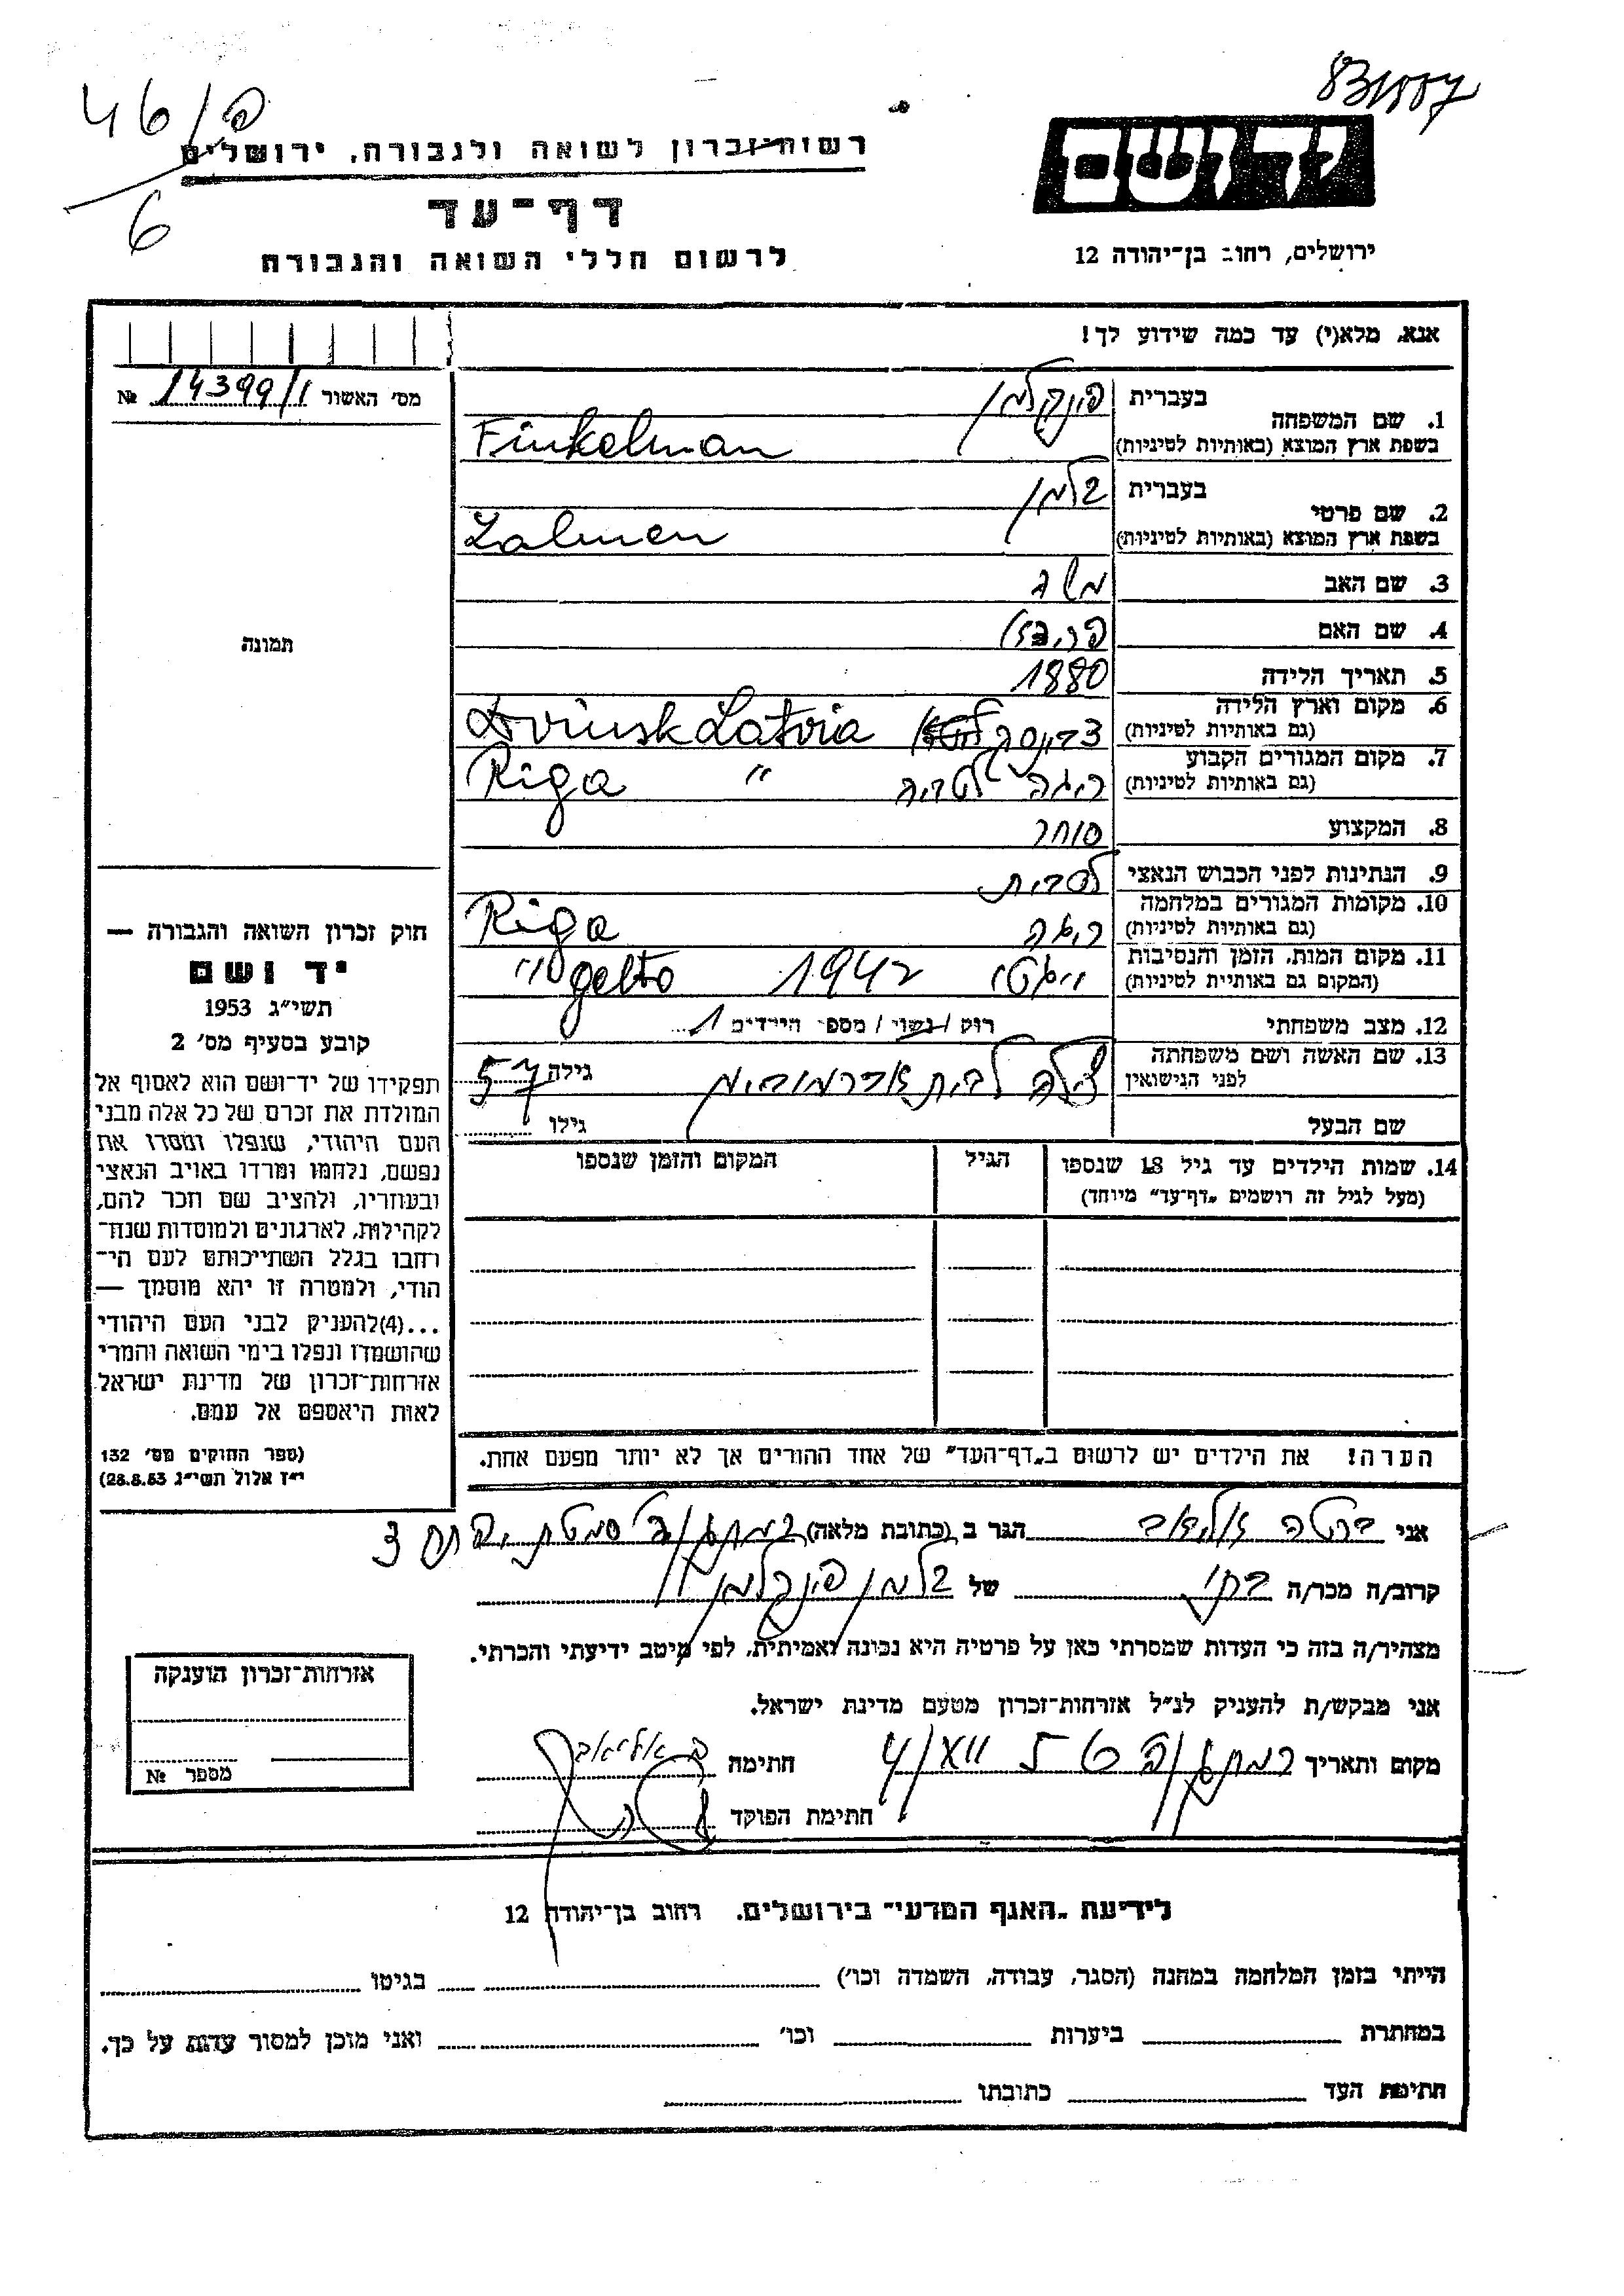 831557
46/פ
6
רשות־זכרון לשואה ולגבורה, ירושלים
יד ושם
דף־עד
לרשום חללי השואה והגבורה
ירושלים, רחוב בן־יהודה 12
אנא, מלא(י) עד כמה שידוע לך!
מס׳ האשור 14399/1 №
1. שם המשפחה
בעברית פינקלמן
בשפת ארץ המוצא (באותיות לטיניות) Finkelman
2. שם פרטי
בעברית זלמן
בשפת ארץ המוצא (באותיות לטיניות) Zalmen
3. שם האב משה
4. שם האם
5. תאריך הלידה 1880
6. מקום וארץ הלידה
(גם באותיות לטיניות) דוינסק Dvinsk Latvia
7. מקום המגורים הקבוע
(גם באותיות לטיניות) ריגה לטביה Riga "
8. המקצוע סוחר
9. הנתינות לפני הכבוש הנאצי לטבית
10. מקומות המגורים במלחמה
(גם באותיות לטיניות) ריגה Riga
11. מקום המות, הזמן והנסיבות
(המקום גם באותיית לטיניות) גטו 1942 " getto
12. מצב משפחתי רווק / נשוי / מספר הילדים 1
13. שם האשה ושם משפחתה
לפני הנישואין צילה לבית אברמוביץ גילה 57
שם הבעל גילו
תמונה
חוק זכרון השואה והגבורה —
יד ושם
תשי״ג 1953
קובע בסעיף מס׳ 2
תפקידו של יד־ושם הוא לאסוף אל
המולדת את זכרם של כל אלה מבני
העם היהודי, שנפלו ומסרו את
נפשם, נלחמו ומרדו באויב הנאצי
ובעוזריו, ולהציב שם וזכר להם,
לקהילות, לארגונים ולמוסדות שנח־
רבו בגלל השתייכותם לעם הי־
הודי, ולמטרה זו יהא מוסמך —
...(4)להעניק לבני העם היהודי
שהושמדו ונפלו בימי השואה והמרי
אזרחות־זכרון של מדינת ישראל
לאות היאספם אל עמם.
(ספר החוקים מס׳ 132
י״ז אלול תשי״ג 28.8.53)
14. שמות הילדים עד גיל 18 שנספו
(מעל לגיל זה רושמים „דף־עד״ מיוחד)
הגיל
המקום והזמן שנספו
הערה! את הילדים יש לרשום ב„דף־העד״ של אחד ההורים אך לא יותר מפעם אחת.
אני ברטה אליאב הגר ב (כתובת מלאה) רמת גן סמטת
קרוב/ה מכר/ה בתו של זלמן פינקלמן
מצהיר/ה בזה כי העדות שמסרתי כאן על פרטיה היא נכונה ואמיתית, לפי מיטב ידיעתי והכרתי.
אני מבקש/ת להעניק לנ״ל אזרחות־זכרון מטעם מדינת ישראל.
מקום ותאריך רמת גן חתימה ב אליאב
חתימת הפוקד
אזרחות־זכרון הוענקה
מספר №
לידיעת „האגף המדעי״ בירושלים. רחוב בן־יהודה 12
הייתי בזמן המלחמה במחנה (הסגר, עבודה, השמדה וכו׳) בגיטו
במחתרת ביערות וכו׳ ואני מוכן למסור עדות על כך.
חתימת העד כתובתו